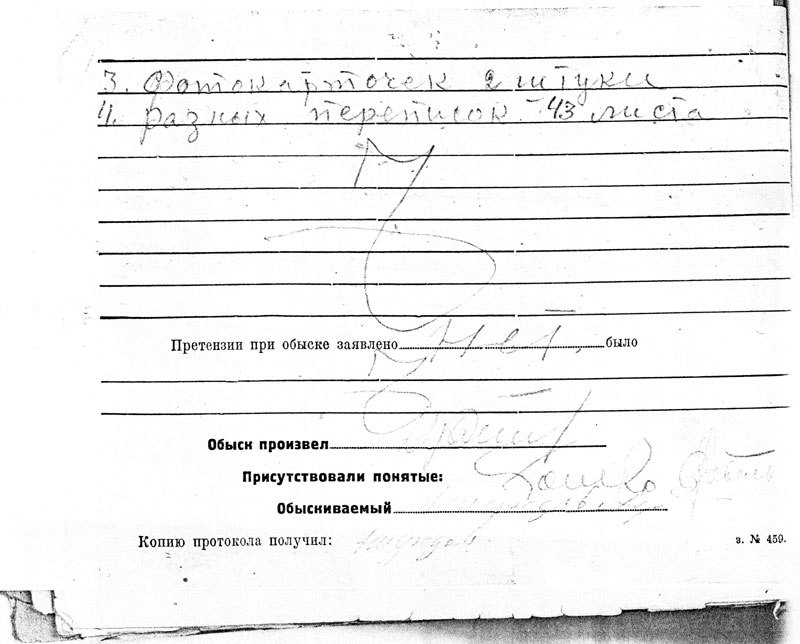 3. Фотокарточек 2 штуки
4. разных переписок 43 листа
Претензии при обыске заявлено нет. было
Обыск произвел
Присутствовали понятые:
Обыскиваемый
Копию протокола получил:
з. № 459.